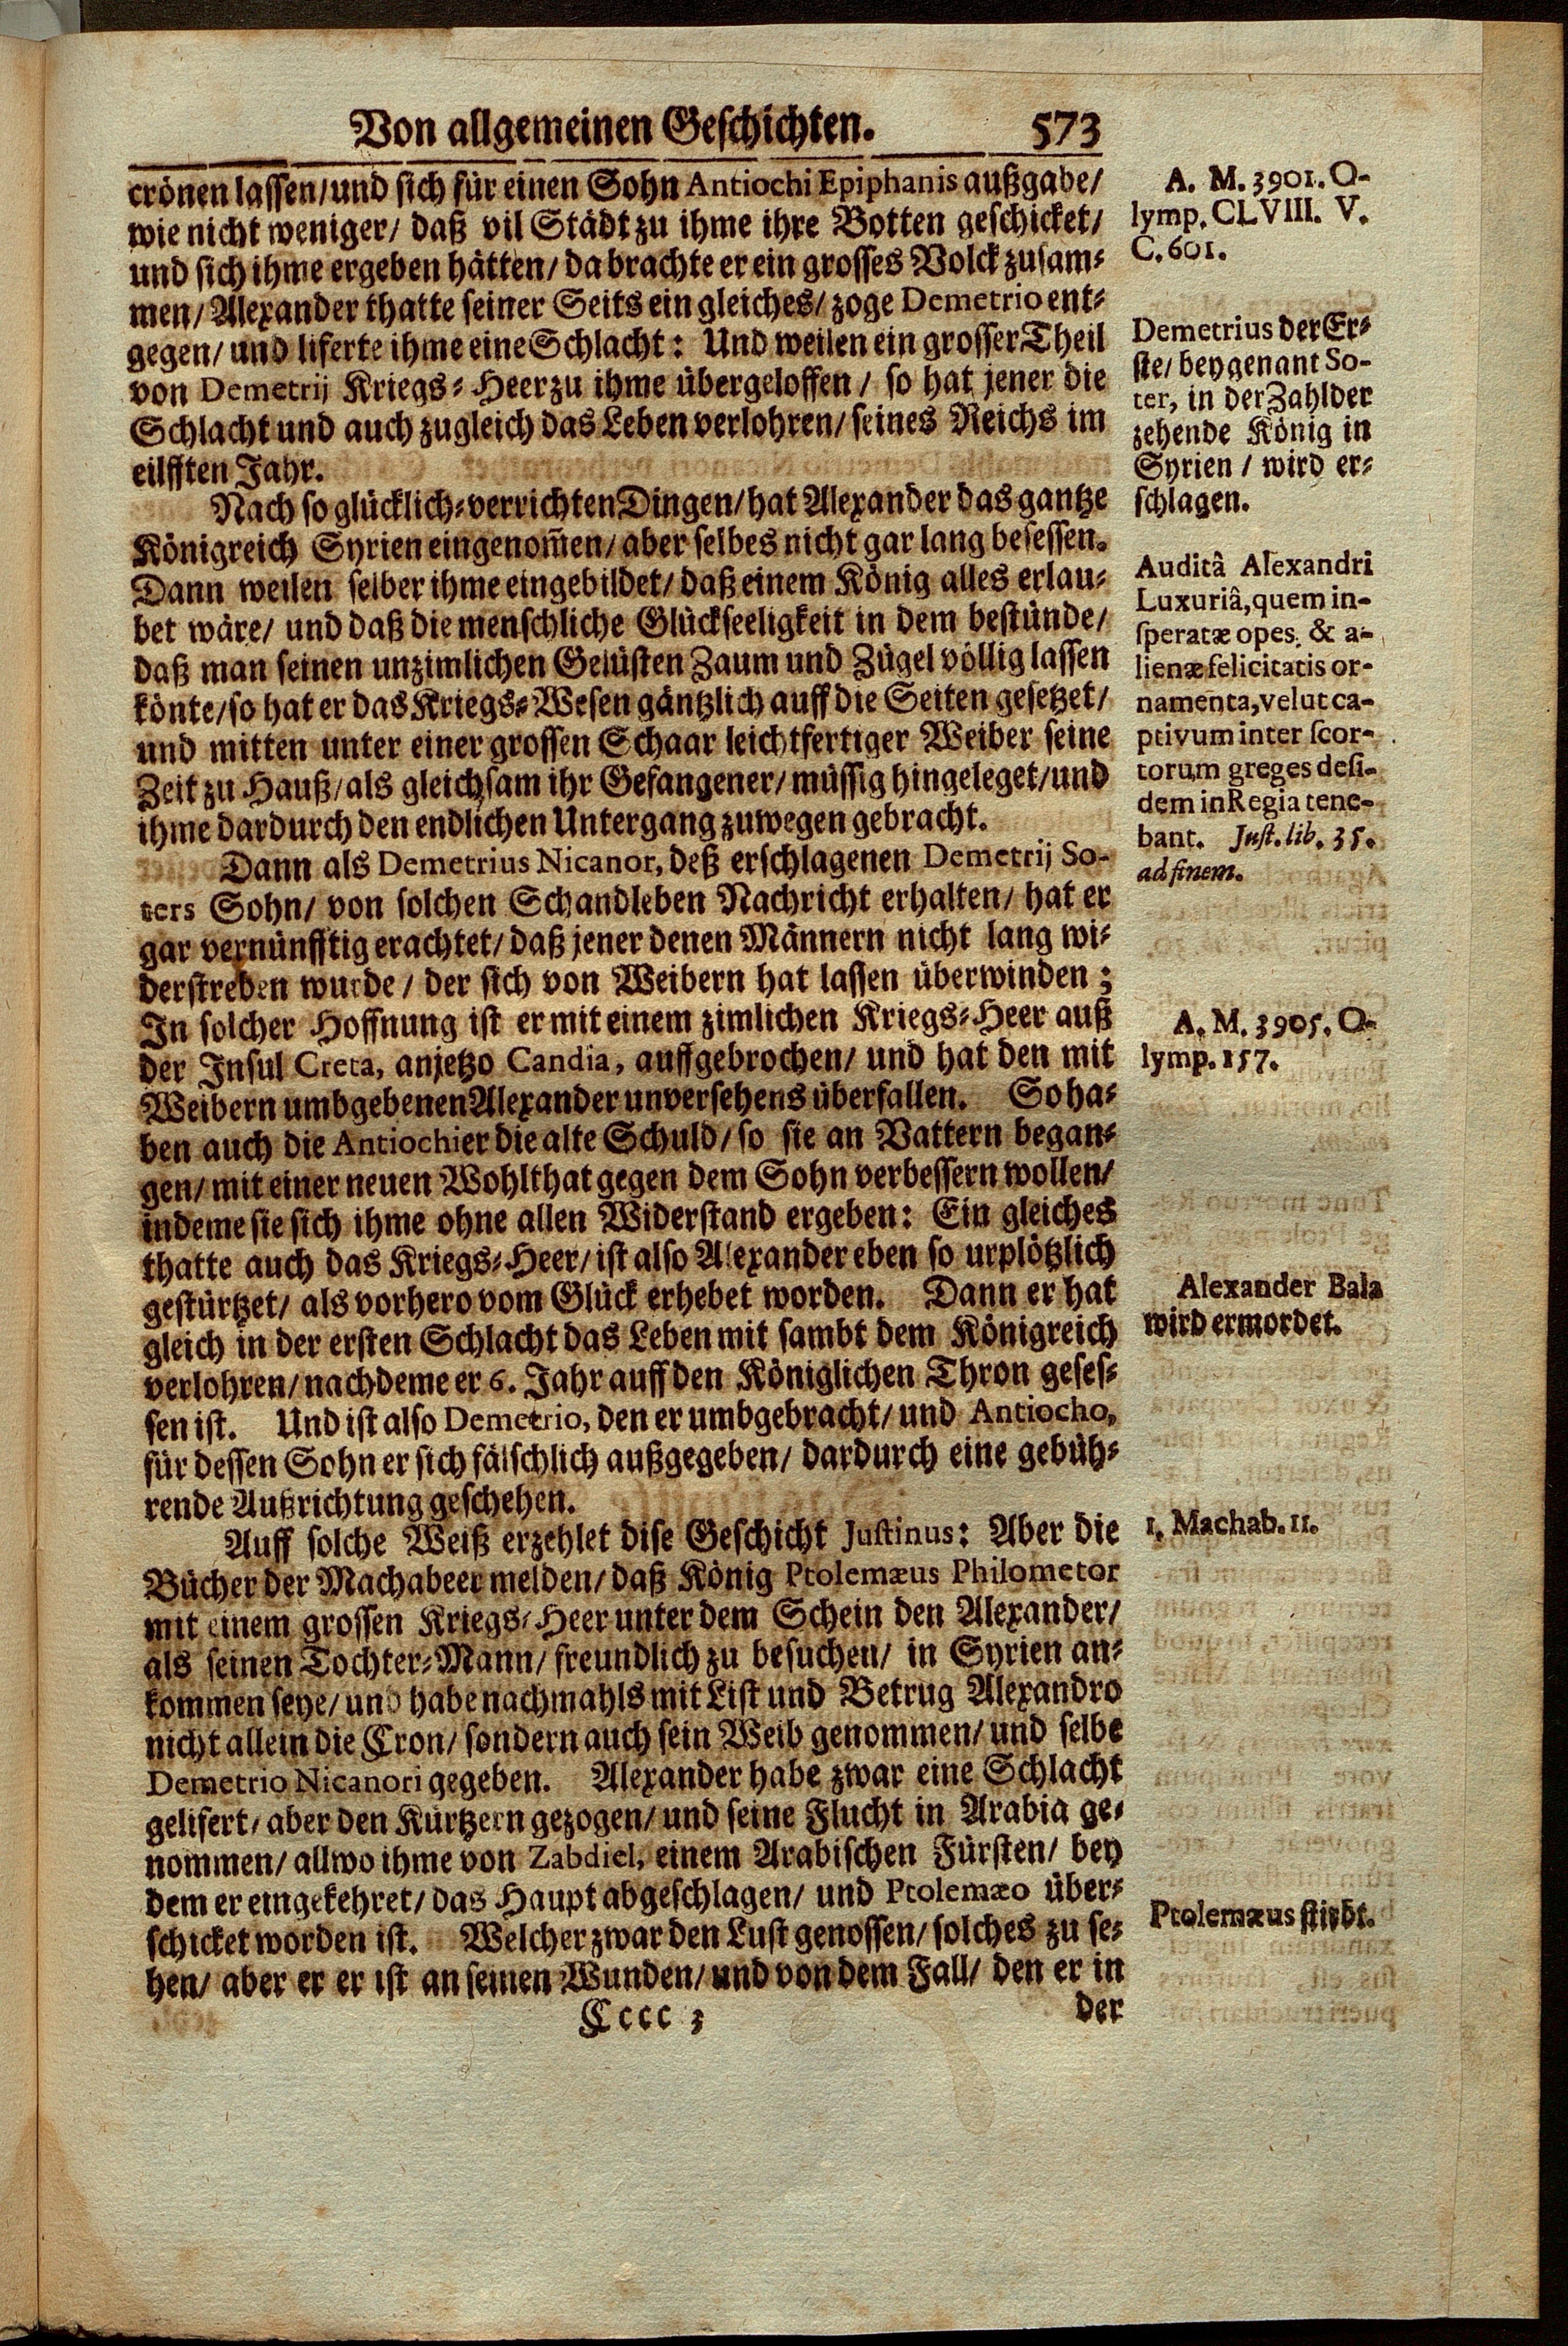 Von allgemeinen Geschichten. 573
crönen lassen/und sich für einen Sohn Antiochi Epiphanis außgabe/
wie nicht weniger/ daß vil Städt zu ihme ihre Botten geschicket/
und sich ihme ergeben hätten/ da brachte er ein grosses Volck zusam-
men/ Alexander thatte seiner Seits ein gleiches/ zoge Demetrio ent-
gegen/ und liferte ihme eine Schlacht: Und weilen ein grosser Theil
von Demetrij Kriegs-Heer zu ihme übergeloffen/ so hat jener die
Schlacht und auch zugleich das Leben verlohren/ seines Reichs im
eilfften Jahr.
Nach so glücklich-verrichten Dingen/ hat Alexander das gantze
Königreich Syrien eingenom̃en/ aber selbes nicht gar lang besessen.
Dann weilen selber ihme eingebildet/ daß einem König alles erlau-
bet wäre/ und daß die menschliche Glückseeligkeit in dem bestünde/
daß man seinen unzimlichen Gelüsten Zaum und Zügel völlig lassen
könte/ so hat er das Kriegs-Wesen gäntzlich auff die Seiten gesetzet/
und mitten unter einer grossen Schaar leichtfertiger Weiber seine
Zeit zu Hauß/ als gleichsam ihr Gefangener/ müssig hingeleget/ und
ihme dardurch den endlichen Untergang zuwegen gebracht.
Dann als Demetrius Nicanor, deß erschlagenen Demetrij So-
ters Sohn/ von solchen Schandleben Nachricht erhalten/ hat er
gar vernünfftig erachtet/ daß jener denen Männern nicht lang wi-
derstreben wurde/ der sich von Weibern hat lassen überwinden;
In solcher Hoffnung ist er mit einem zimlichen Kriegs-Heer auß
der Insul Creta, anjetzo Candia, auffgebrochen/ und hat den mit
Weibern umbgebenen Alexander unversehens überfallen. So ha-
ben auch die Antiochier die alte Schuld/ so sie an Vattern began-
gen/ mit einer neuen Wohlthat gegen dem Sohn verbessern wollen/
indeme sie sich ihme ohne allen Widerstand ergeben: Ein gleiches
thatte auch das Kriegs-Heer/ ist also Alexander eben so urplötzlich
gestürtzet/ als vorhero vom Glück erhebet worden. Dann er hat
gleich in der ersten Schlacht das Leben mit sambt dem Königreich
verlohren/ nachdeme er 6. Jahr auff den Königlichen Thron geses-
sen ist. Und ist also Demetrio, den er umbgebracht/ und Antiocho,
für dessen Sohn er sich fälschlich außgegeben/ dardurch eine gebüh-
rende Außrichtung geschehen.
Auff solche Weiß erzehlet dise Geschicht Justinus: Aber die
Bücher der Machabeer melden/ daß König Ptolemæus Philometor
mit einem grossen Kriegs-Heer unter dem Schein den Alexander/
als seinen Tochter-Mann/ freundlich zu besuchen/ in Syrien an-
kommen seye/ und habe nachmahls mit List und Betrug Alexandro
nicht allein die Cron/ sondern auch sein Weib genommen/ und selbe
Demetrio Nicanori gegeben. Alexander habe zwar eine Schlacht
gelifert/ aber den Kürtzern gezogen/ und seine Flucht in Arabia ge-
nommen/ allwo ihme von Zabdiel, einem Arabischen Fürsten/ bey
dem er eingekehret/ das Haupt abgeschlagen/ und Ptolemæo über-
schicket worden ist. Welcher zwar den Lust genossen/ solches zu se-
hen/ aber er er ist an seinen Wunden/ und von dem Fall/ den er in
Cccc 3 der
A. M. 3901. O-
lymp. CLVIII. V.
C. 601.
Demetrius der Er-
ste/ beygenant So-
ter, in der Zahl der
zehende König in
Syrien/ wird er-
schlagen.
Auditâ Alexandri
Luxuriâ, quem in-
speratæ opes, & a-
lienæ felicitatis or-
namenta, velut ca-
ptivum inter scor-
torum greges desi-
dem in Regia tene-
bant. Just. lib. 35.
ad finem.
A. M. 3905. O-
lymp. 157.
Alexander Bala
wird ermordet.
1. Machab. 11.
Ptolemæus stirbt.